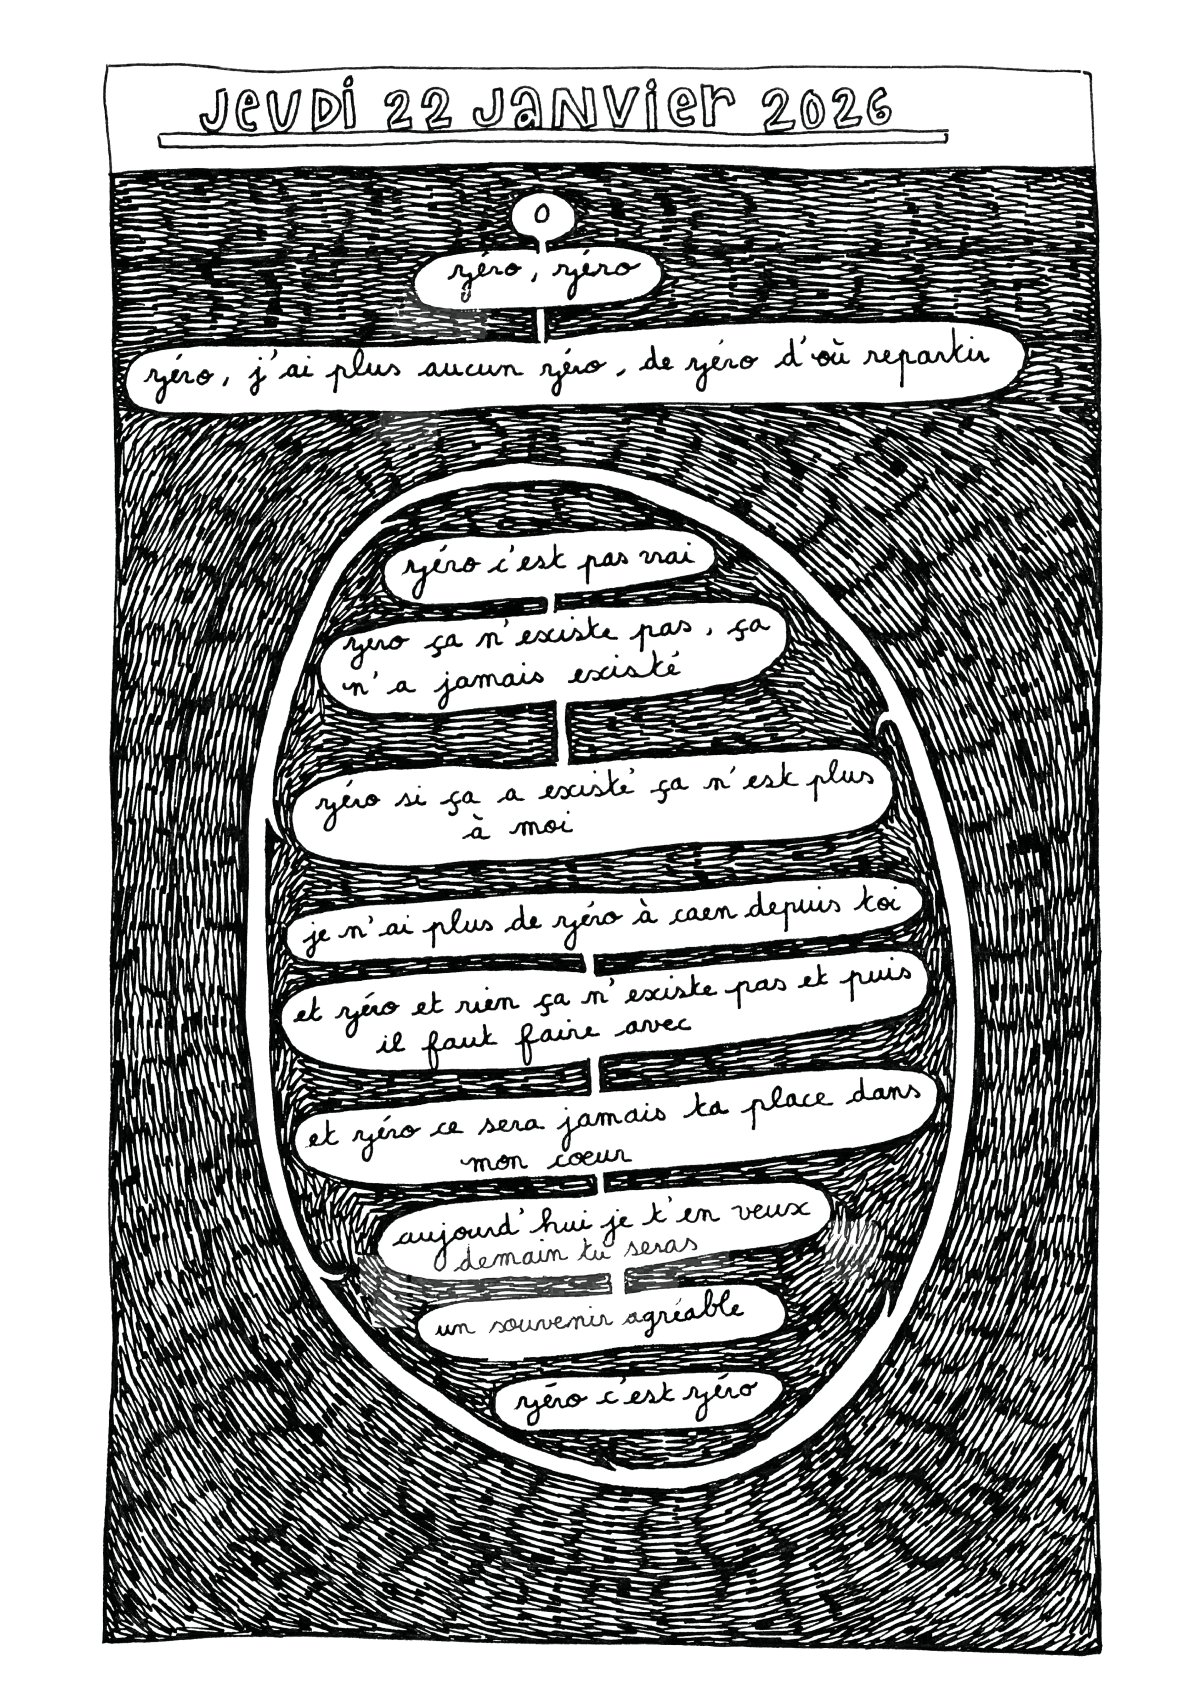 JEUDI 22 JANVIER 2026
0
zéro, zéro
zéro, j'ai plus aucun zéro, de zéro d'où repartir
zéro c'est pas vrai
zero ça n'existe pas, ça
n'a jamais existé
zéro si ça a existé ça n'est plus
à moi
je n'ai plus de zéro à caen depuis toi
et zéro et rien ça n'existe pas et puis
il faut faire avec
et zéro ce sera jamais ta place dans
mon coeur
aujourd'hui je t'en veux
demain tu seras
un souvenir agréable
zéro c'est zéro